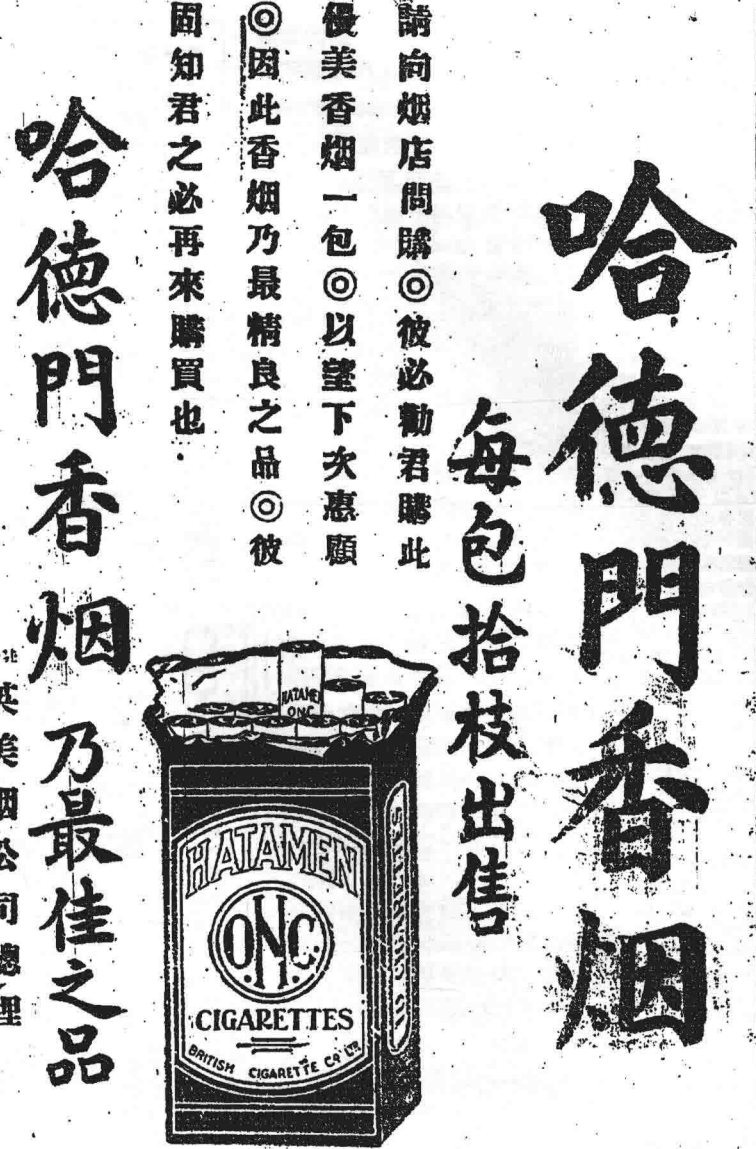 哈德門香烟
每包拾枝出售
請向烟店問購◎彼必勸君購此
優美香烟一包◎以望下次惠顧
◎因此香烟乃最精良之品◎彼
固知君之必再來購買也
哈德門香烟乃最佳之品
英美烟公司總理
HATAMEN
ONC
HATAMEN
O.N.C.
CIGARETTES
BRITISH CIGARETTE CO LTD
CIGARETTES